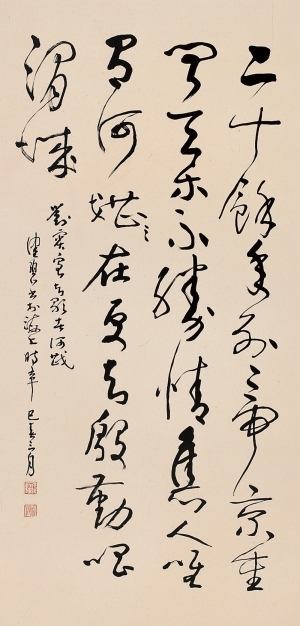 二十餘年別帝京重
聞天樂不勝情舊人唯
有何戡在更與殷勤唱
渭城
劉賓客與歌者何戡
書於海上時辛巳春三月